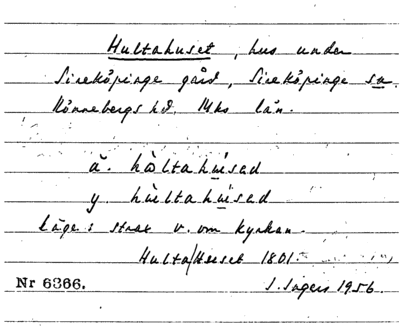 Hultahuset, hus under
Sireköpinge gård, Sireköpinge sn.
Rönnebergs hd. Mhs län.
ä. hàltahúsad
y. hùltahúsad
Läge: strax v. om kyrkan.
Hulta/Huset 1801.
Nr 6366. S. Ingers 1956.